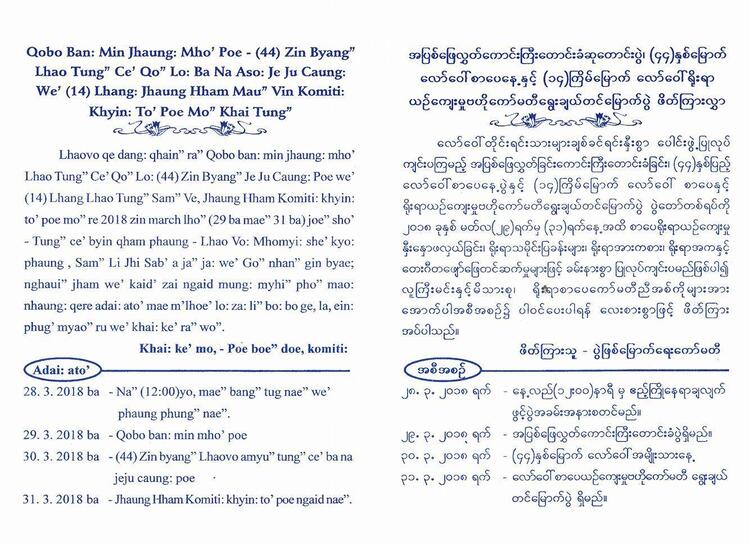 Qobo Ban: Min Jhaung: Mho’ Poe - (44) Zin Byang”
Lhao Tung” Ce’ Qo” Lo: Ba Na Aso: Je Ju Caung:
We’ (14) Lhang: Jhaung Hham Mau” Vin Komiti:
Khyin: To’ Poe Mo” Khai Tung”
Lhaovo qe dang: qhain” ra” Qobo ban: min jhaung: mho’
Lhao Tung” Ce’ Qo” Lo: (44) Zin Byang” Je Ju Caung: Poe we’
(14) Lhang Lhao Tung” Sam” Ve, Jhaung Hham Komiti: khyin:
to’ poe mo” re 2018 zin march lho” (29 ba mae” 31 ba) joe” sho’
- Tung” ce’ byin qham phaung - Lhao Vo: Mhomyi: she’ kyo:
phaung , Sam” Li Jhi Sab’ a ja” ja: we’ Go” nhan” gin byae;
nghaui” jham we’ kaid’ zai ngaid mung: myhi” pho” mao:
nhaung: qere adai: ato’ mae m’lhoe’ lo: za: li” bo: bo ge, la, ein:
phug’ myao” ru we’ khai: ke’ ra” wo”.
Khai: ke’ mo, - Poe boe” doe, komiti:
Adai: ato’
28. 3. 2018 ba - Na” (12:00)yo, mae” bang” tug nae” we’
phaung phung” nae”.
29. 3. 2018 ba - Qobo ban: min mho’ poe
30. 3. 2018 ba - (44) Zin byang” Lhaovo amyu” tung” ce’ ba na
jeju caung: poe
31. 3. 2018 ba - Jhaung Hham Komiti: khyin: to’ poe ngaid nae”.
အပြစ်ဖြေလွှတ်ကောင်းကြီးတောင်းခံဆုတောင်းပွဲ၊ (၄၄)နှစ်မြောက်
လော်ဝေါ်စာပေနေ့နှင့် (၁၄)ကြိမ်မြောက် လော်ဝေါ်ရိုးရာ
ယဉ်ကျေးမှုဗဟိုကော်မတီရွေးချယ်တင်မြှောက်ပွဲ ဖိတ်ကြားလွှာ
လော်ဝေါ်တိုင်းရင်းသားများချစ်ခင်ရင်းနှီးစွာ ပေါင်းဖွဲ့ပြုလုပ်
ကျင်းပကြမည့် အပြစ်ဖြေလွှတ်ခြင်းကောင်းကြီးတောင်းခံခြင်း၊ (၄၄)နှစ်ပြည့်
လော်ဝေါ်စာပေနေ့ပွဲနှင့် (၁၄)ကြိမ်မြောက် လော်ဝေါ် စာပေနှင့်
ရိုးရာယဉ်ကျေးမှုကော်မတီရွေးချယ်တင်မြှောက်ပွဲ ပွဲတော်တစ်ရပ်ကို
၂၀၁၈ ခုနှစ် မတ်လ(၂၉)ရက်မှ (၃၁)ရက်နေ့အထိ စာပေရိုးရာယဉ်ကျေးမှု
နှီးနှောဖလှယ်ခြင်း၊ ရိုးရာသမိုင်းပြခန်းများ၊ ရိုးရာအားကစား၊ ရိုးရာအကနှင့်
တေးဂီတဖျော်ဖြေတင်ဆက်မှုများဖြင့် ခမ်းနားစွာ ပြုလုပ်ကျင်းပမည်ဖြစ်ပါ၍
လူကြီးမင်းနှင့်မိသားစု၊ ရိုးရာစာပေကော်မတီညီအစ်ကိုများအား
အောက်ပါအစီအစဉ်၌ ပါဝင်ပေးပါရန် လေးစားစွာဖြင့် ဖိတ်ကြား
အပ်ပါသည်။
ဖိတ်ကြားသူ - ပွဲဖြစ်မြောက်ရေးကော်မတီ
အစီအစဉ်
၂၈. ၃. ၂၀၁၈ ရက် - နေ့လည်(၁၂:၀၀)နာရီ မှ ဧည့်ကြိုနေရာချလျက်
ဖွင့်ပွဲအခမ်းအနားစတင်မည်။
၂၉. ၃. ၂၀၁၈ ရက် - အပြစ်ဖြေလွှတ်ကောင်းကြီးတောင်းခံပွဲရှိမည်။
၃၀. ၃. ၂၀၁၈ ရက် - (၄၄)နှစ်မြောက် လော်ဝေါ်အမျိုးသားနေ့
၃၁. ၃. ၂၀၁၈ ရက် - လော်ဝေါ်စာပေယဉ်ကျေးမှုဗဟိုကော်မတီ ရွေးချယ်
တင်မြှောက်ပွဲ ရှိမည်။